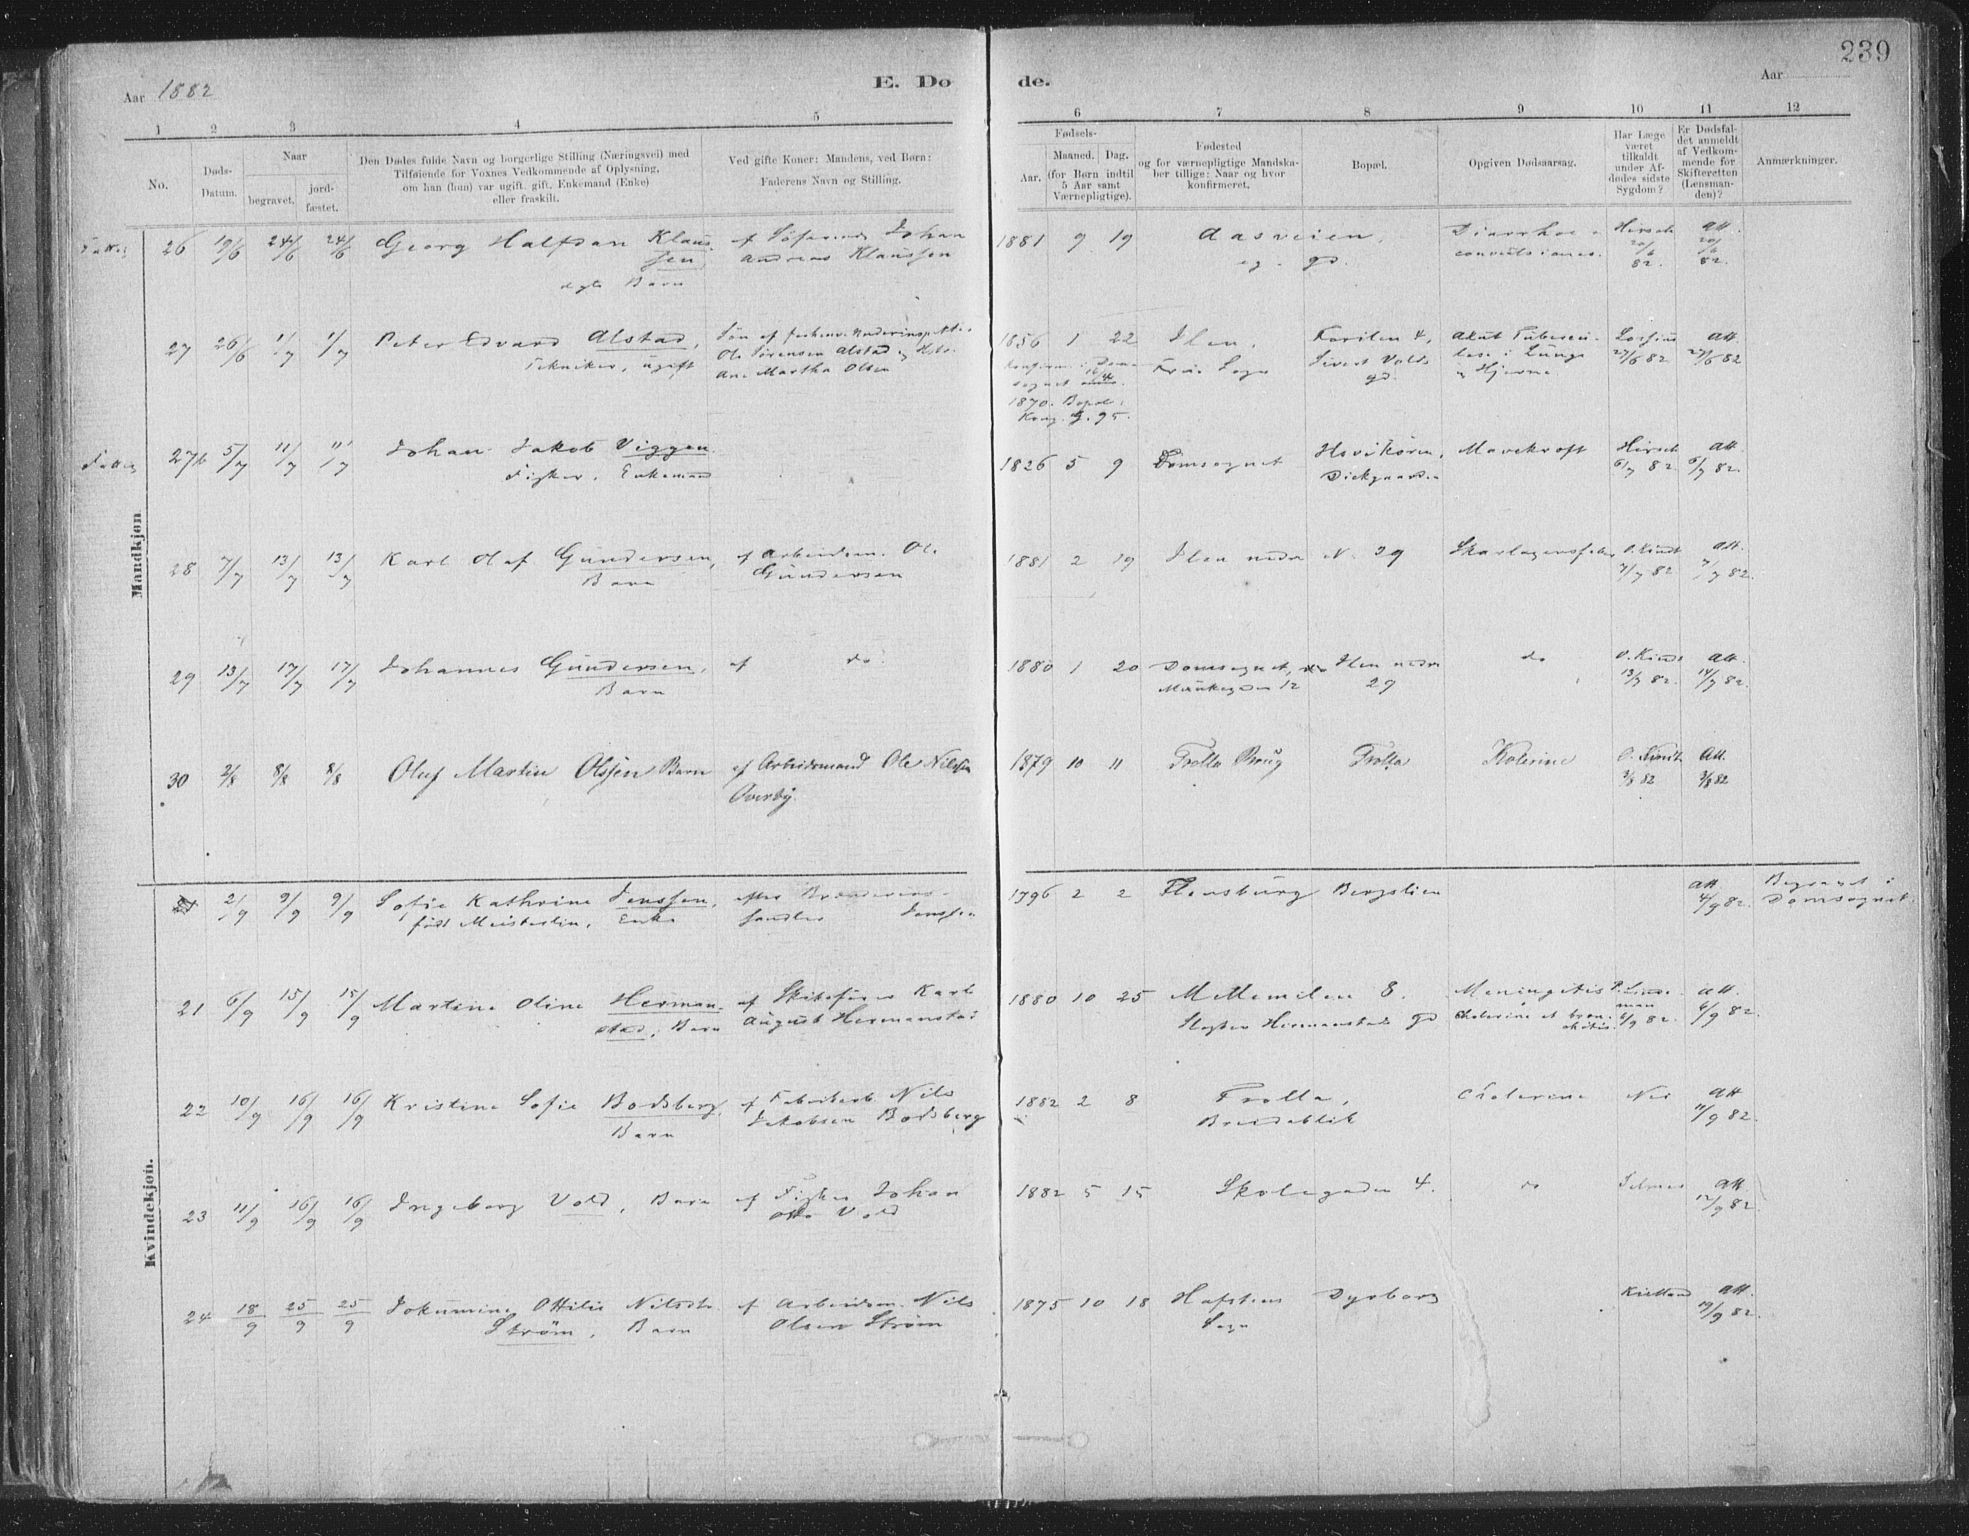 239
Aar 1882
E. Dø
de.
Aar
1 2 3 4 5 6 7 8 9 10 11 12
No.
Døds-
Datum.
Naar
begravet.
jord-
fæstet.
Den Dødes fulde Navn og borgerlige Stilling (Næringsvei) med
Tilføiende for Voxnes Vedkommende af Oplysning,
om han (hun) var ugift, gift, Enkemand (Enke)
eller fraskilt.
Ved gifte Koner: Mandens, ved Børn:
Faderens Navn og Stilling.
Fødsels-
Aar.
Maaned. Dag.
(for Børn indtil
5 Aar samt
Værnepligtige).
Fødested
og for værnepligtige Mandska-
ber tillige: Naar og hvor
konfirmeret.
Bopæl.
Opgiven Dødsaarsag.
Har Læge
været
tilkaldt
under Af-
dødes sidste
Sygdom?
Er Dødsfal-
det anmeldt
af Vedkom-
mende for
Skifteretten
(Lensman-
den)?
Anmærkninger.
Mandkjøn
26 19/6 24/6 24/6 Georg Halfdan Klaus- af Johan 1881 9 19 Aasveien, Diarrhoe Hirsch Att.
sen Andreas Klaussen gd. convulsiones. 20/6 20/6
ægte Barn 82. 82.
27 26/6 1/7 1/7 Peter Edvard Alstad, Søn af 1856 1 22 Ilen, 4, akut Tubercu- Att
Tekniker, ugift Ole Sørensen Alstad og Sivert Volds lose i Lunge 27/6 82 27/6 82
Ane Martha Olsen gd. og Hjerne
1870. Bopæl:
Kong. G. 95.
27b 5/7 11/7 11/7 Johan Jakob Viggen 1826 5 9 Domsognet Mavekræft Hirsch Att
Fisker, Enkemand 6/7 82 6/7 82.
28 7/7 13/7 13/7 Karl Olaf Gundersen, af Arbeidsm. Ole 1881 2 19 Ilen nedre N. 29 Skarlagensfeber Att.
Barn Gundersen 7/7 82 7/7 82.
29 13/7 17/7 17/7 Johannes Gundersen, af do. 1880 1 20 Domsognet, Ilen nedre do Att.
Barn Munkegaden 12 29 13/7 82. 14/7 82.
30 2/8 8/8 8/8 Oluf Martin Olssen Barn af Arbeidsmand Ole Nilssen 1879 10 11 Trolla Brug Trolla Kolerine Att.
2/8 82 3/8 82
Kvindekjøn.
2/9 9/9 9/9 Sofie Kathrine Jenssen, efter 1796 2 2 Flensburg Bergslien Att Begravet i
født Meisterlin, Enke handler Jenssen 4/9 82. Domsognet.
21 6/9 15/9 15/9 Martine Oline Herman- af Karl 1880 10 25 Mellemilen 8. Meningitis Att.
stad, Barn August Hermanstad Hermanstads gd cholerine et bron- 6/9 82. 6/9 82.
chitis.
22 10/9 16/9 16/9 Kristine Sofie Bodsberg, af Fabrikarb. Nils 1882 2 8 Trolla, Cholerine Nei Att
Barn Jakobsen Bodsberg Breidablik 11/9 82.
23 11/9 16/9 16/9 Ingeborg Vold, Barn af Fisker Johan 1882 5 15 Skolegaden 4. do Att
Otto Vold 12/9 82.
24 18/9 25/9 25/9 Jokumine Ottilie Nilsdtr af Arbeidsm. Nils 1875 10 18 Hafstens Dyrborg Kielland Att.
Strøm, Barn Olsen Strøm Sogn 19/9 82.